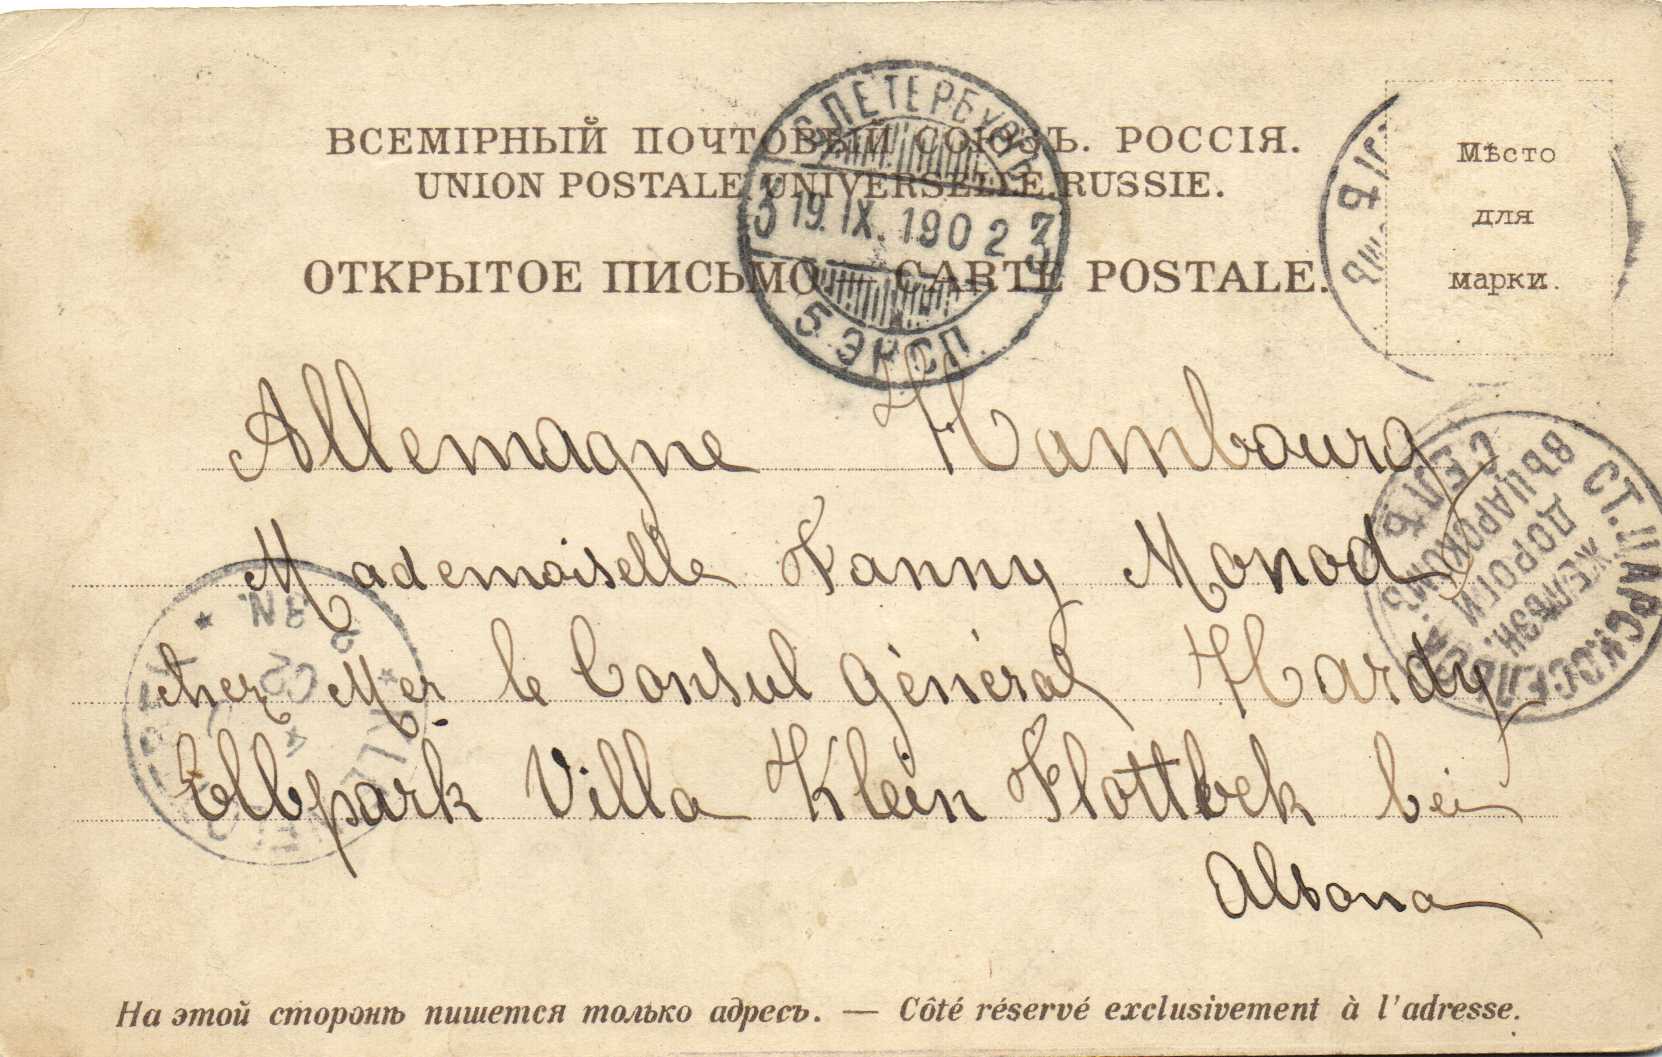 ВСЕМІРНЫЙ ПОЧТОВЫЙ СОЮЗЪ. РОССІЯ.
UNION POSTALE UNIVERSELLE. RUSSIE.
ОТКРЫТОЕ ПИСЬМО. — CARTE POSTALE.
Мѣсто
для
марки.
С.ПЕТЕРБУРГЪ
3 19.IX.1902 3
5 ЭКСП.
СТ. ЦАРСКОСЕЛЬСК.
ЖЕЛѢЗН.
ДОРОГИ
ВЪ ЦАРСКОМЪ
СЕЛѢ
Allemagne Hambourg
Mademoiselle Fanny Monod
chez Mer le Consul général Hardy
Elbpark Villa Klein Flottbek bei
Altona
8 N.
На этой сторонѣ пишется только адресъ. — Côté réservé exclusivement à l'adresse.